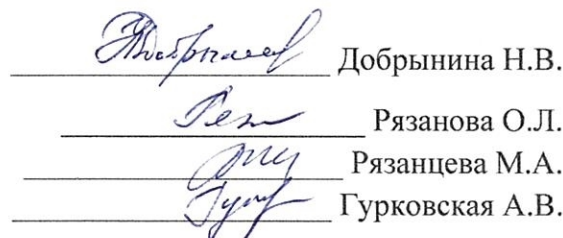 Добрынина Н.В.
Рязанова О.Л.
Рязанцева М.А.
Гурковская А.В.